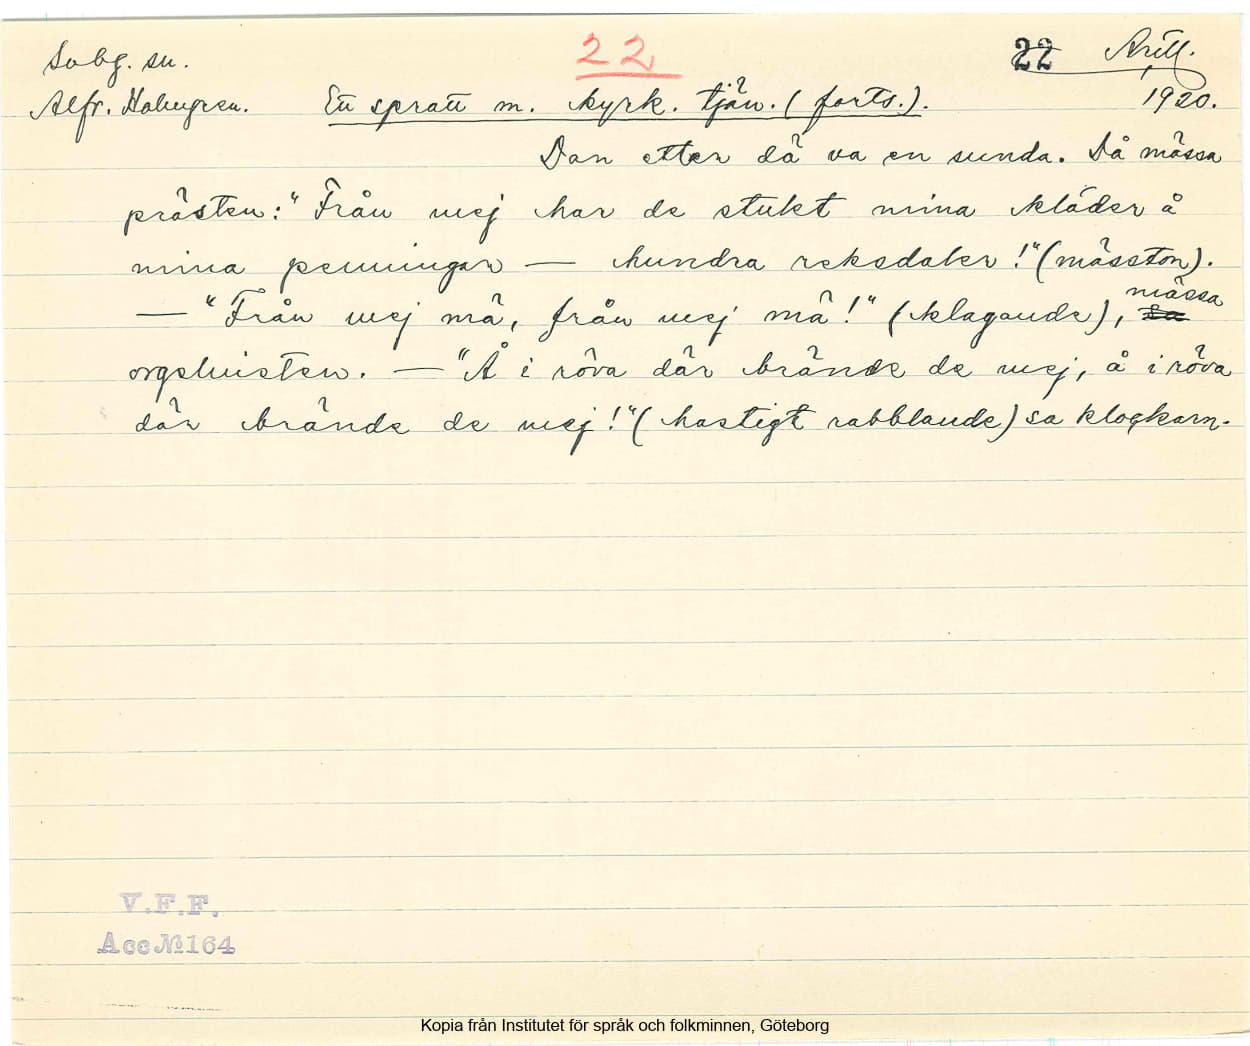 22
22 Aritl.
Solbg. sn.
Alfr. Holmgren. En spratt m. kyrk. tjän. (forts.). 1920.
Dan etter dä va en sunda. Då mässa
prästen: "Från mej har de stulet mina kläder å
mina penningar — hundra reksdaler!" (mässton).
— "Från mej mä, från mej mä!" (klagande), mässa
orgelnisten. — "Å i röva där brände de mej, å i röva
där brände de mej!" (hastigt rabblande) sa klockarn.
V.F.F.
Acc № 164
Kopia från Institutet för språk och folkminnen, Göteborg